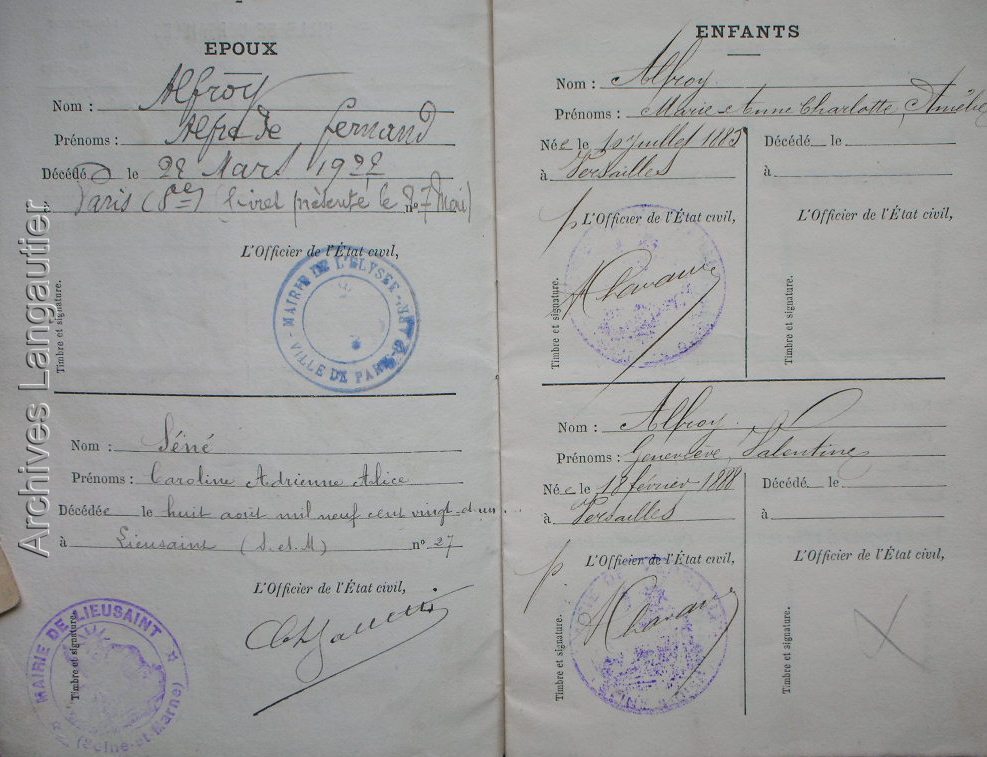 EPOUX
Nom : Alfroy
Prénoms : Alfrede Fernand
Décédé le 22 Mars 1922
à Paris (8e) livret présenté le 27 Mai) n°
L'Officier de l'État civil,
Timbre et signature.
MAIRIE DE L'ELYSEE
VILLE DE PARIS
Nom : Séné
Prénoms : Caroline Adrienne Alice
Décédée le huit aout mil neuf cent vingt-et-un
à Lieusaint (S.et.M) n° 27
L'Officier de l'État civil,
Timbre et signature.
MAIRIE DE LIEUSAINT
(Seine-et-Marne)
Archives Langautier
ENFANTS
Nom : Alfroy
Prénoms : Marie Anne Charlotte, Amélie
Née le juillet 1885
à Versailles
L'Officier de l'État civil,
Timbre et signature.
Décédé le
à
L'Officier de l'État civil,
Timbre et signature.
Nom : Alfroy
Prénoms : Geneviève, Valentine
Née le 18 février 1888
à Versailles
L'Officier de l'État civil,
Timbre et signature.
Décédé le
à
L'Officier de l'État civil,
Timbre et signature.